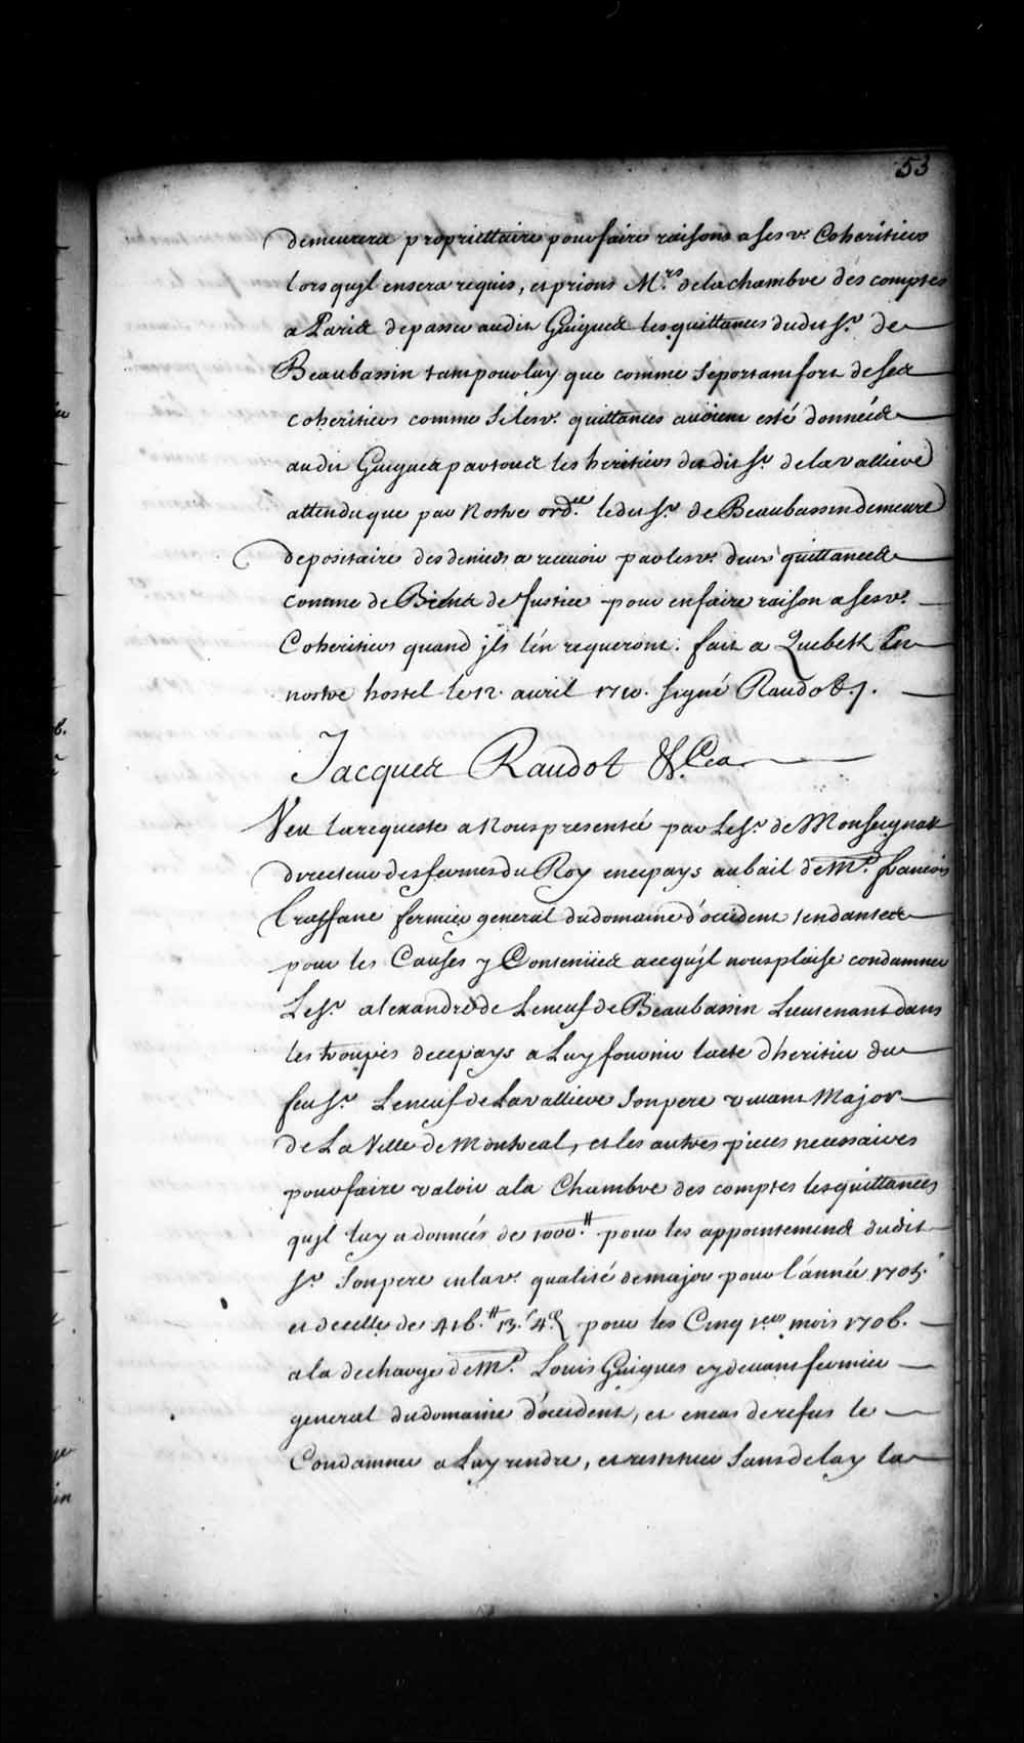 53
demeurera proprietaire pour faire raisons a sesd. Coheritiers
lors quyl en sera requis, et prions M.rs de la chambre des comptes
a Paris de passer audit Guigues les quittances dudit Sr. de
Beaubassin tant pour luy que comme se portant fort de ses
coheritiers comme si lesd. quittances auoient esté données
audit Guigues par tous les heritiers dudit Sr. de la valliere
attendu que par Nostre ord.ce ledit Sr. de Beaubassin demeure
depositaire des deniers a receuoir par lesd. deux quittances
comme de Biens de Justice pour en faire raison a sesd.
Coheritiers quand jls l'en requeront. fait a Quebek En
nostre hostel le 12. auril 1710. signé Raudot ./.
Jacques Raudot &.Ca
Veu la requeste a Nous presentée par Le Sr. de Monseignat
directeur des fermes du Roy en ce pays au bail de M.e francois
Traffane fermier general du domaine d'occident tendante
pour les Causes y Contenües a ce qu'jl nous plaise condamner
Le Sr. alexandre de Leneuf de Beaubassin Lieutenant dans
les troupes de ce pays a Luy fournir lacte d'heritier du
feu Sr. Leneuf de Lavalliere son pere viuant Major
de La Ville de Montreal, et les autres pieces necessaires
pour faire valoir a la Chambre des comptes les quittances
quyl luy a donnés de 1000.₶ pour les appointements dudit
Sr. Son pere en lad. qualité de major pour l'année 1705.
et de celle de 416.₶ 13.s 4.d pour les Cinq 1.ers mois 1706.
a la decharge de M.e Louis Guigues cy deuant fermier
general du domaine d'occident, et en cas de refus le
Condamner a Luy rendre, et restituer sans delay la